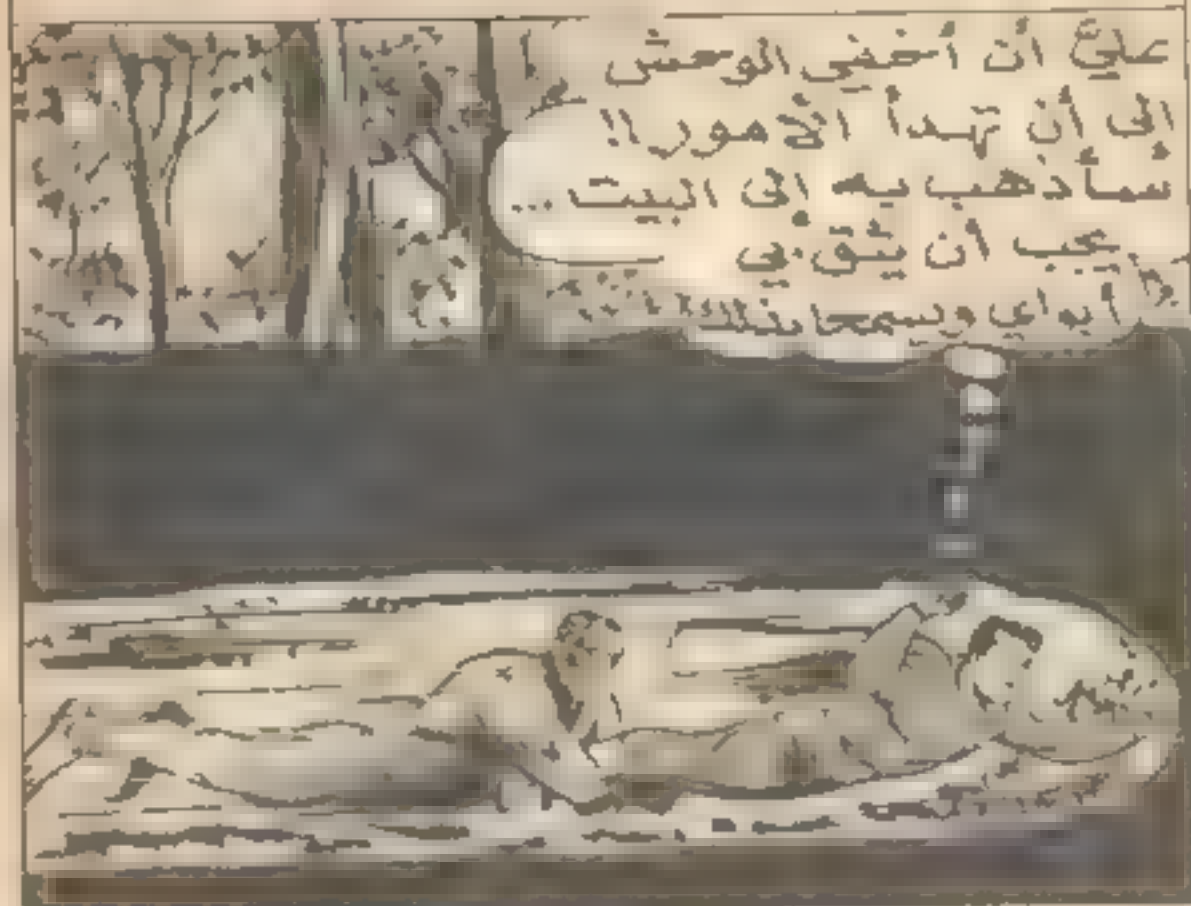 عليَّ أن أخفي الوحش
الى أن تهدأ الأمور!!
سأذهب به الى البيت ...
يجب أن يثق بي
أبواي